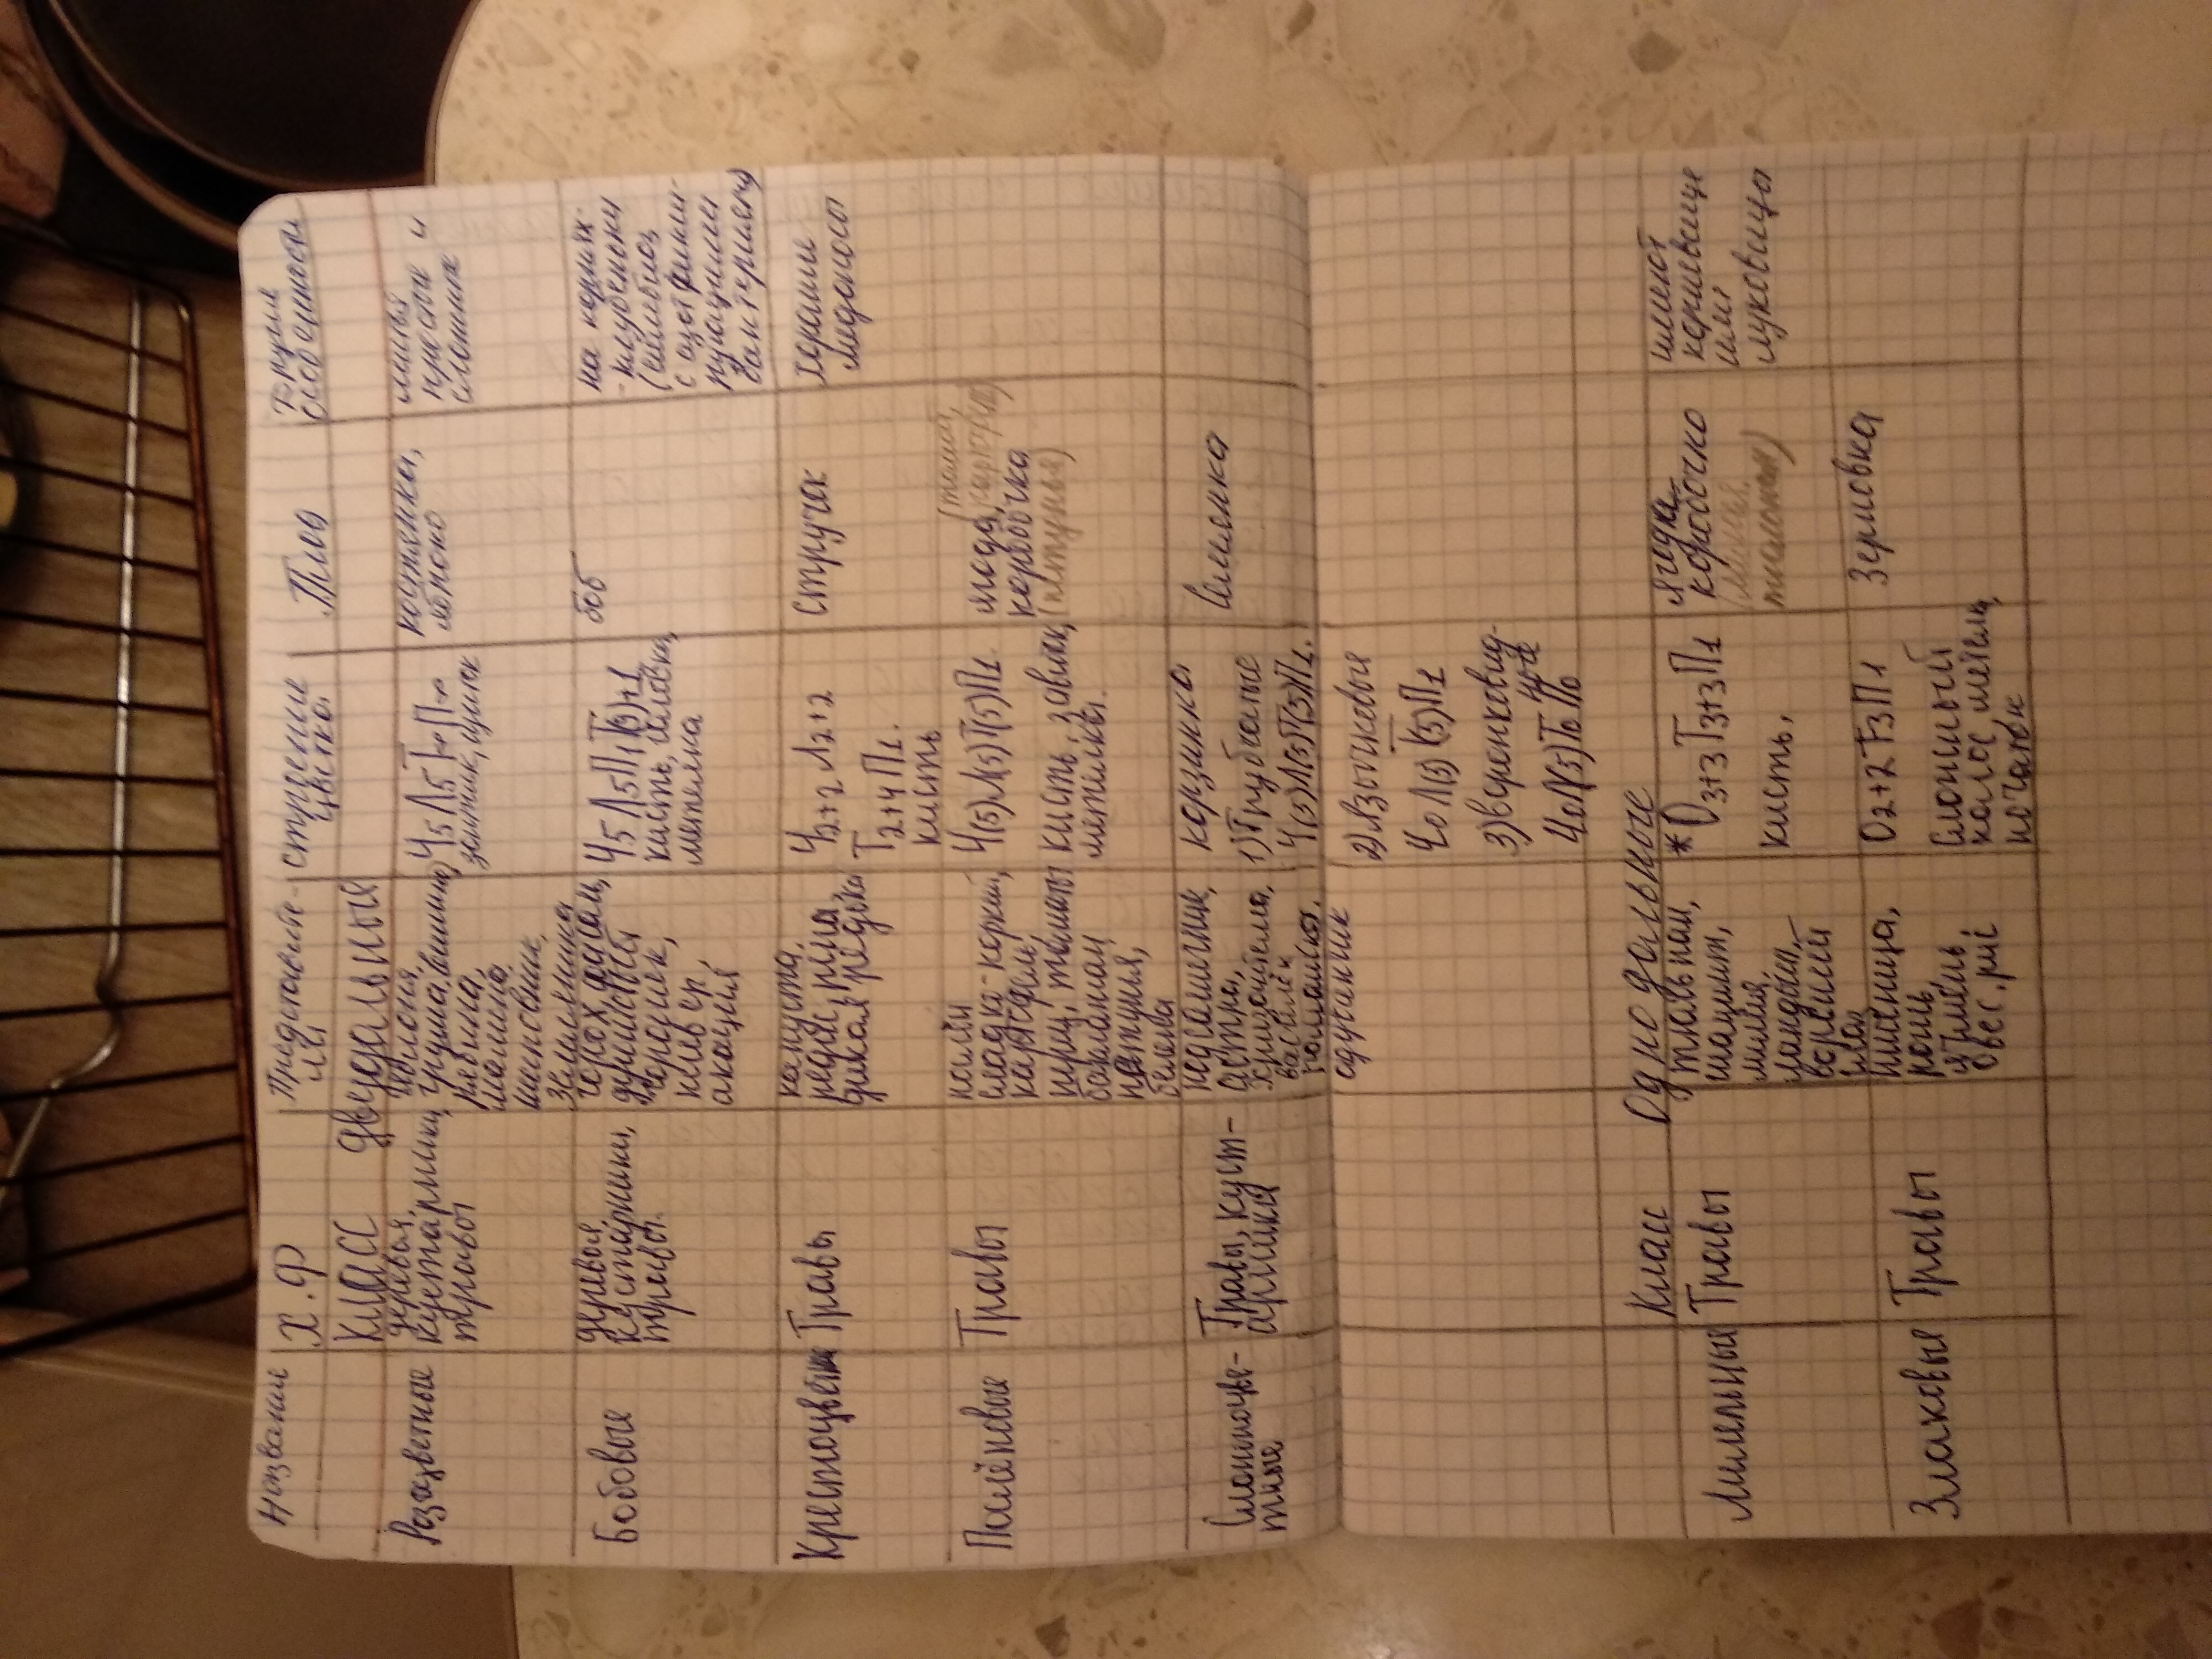 Название
Х.Ф
Представите-
ли
строение
цветка
Плод
Другие
особенности
Класс Двудольный
Розоцветные
деревья,
кустарники,
травы
яблоня,
груша, вишня,
рябина,
малина,
шиповник,
земляника
Ч5 Л5 Т∞ П∞
зонтик, щиток
костянка,
яблоко
листья
простые и
сложные
Бобовые
деревья,
кустарники,
травы.
горох, фасоль,
душистый
горошек,
клевер,
акация
Ч5 Л5 П1 Т(9)+1
кисть, головка,
метелка
боб
на корнях-
-клубеньки
(симбиоз
с азотфикси-
рующими
бактериями)
Крестоцветн
Травы
капуста,
редис, репа,
дикая редька
Ч2+2 Л2+2
Т2+4 П1.
кисть
стручек
хорошие
медоносы
Паслёновые
Травы
паслён
сладко-горький,
картофель,
перец, томаты
баклажан
петуния,
белена
Ч(5)Л(5)Т(5)П1.
кисть, завиток,
метелка.
(томат,
картофель)
ягода,
коробочка
(петунья)
Сложноцве-
тные
Травы, куст-
арники
подсолнечник,
астра,
хризантема,
василёк
ромашка.
одуванчик
корзинка
1) Трубчатые
Ч(5)Л(5)Т(5)П1.
2) Язычковые
Ч0 Л(5) Т(5)П1
3) воронковид-
ные
Ч0Л(5)Т0 П0
Семянка
Класс Однодольные
Лилейные
Травы
тюльпан,
гиацинт,
лилия,
ландыш,
вороний
глаз
* О3+3Т3+3П1
кисть,
Ягода,
коробочка
имеют
корневище
или
луковицы
Злаковые
Травы
пшеница,
рожь,
ячмень,
овес, рис
О2+2 Т3П1
Сложный
колос, метелка,
початок
Зерновка